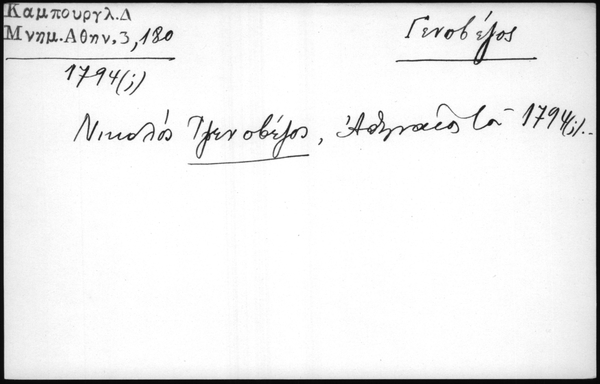 Καμπουργλ.Δ
Μνημ.Αθην.3,180
Γενοβέζος
1794(;)
Νικολός Τζενοβέζος, Ἀθηναῖος τὸ 1794(;)..